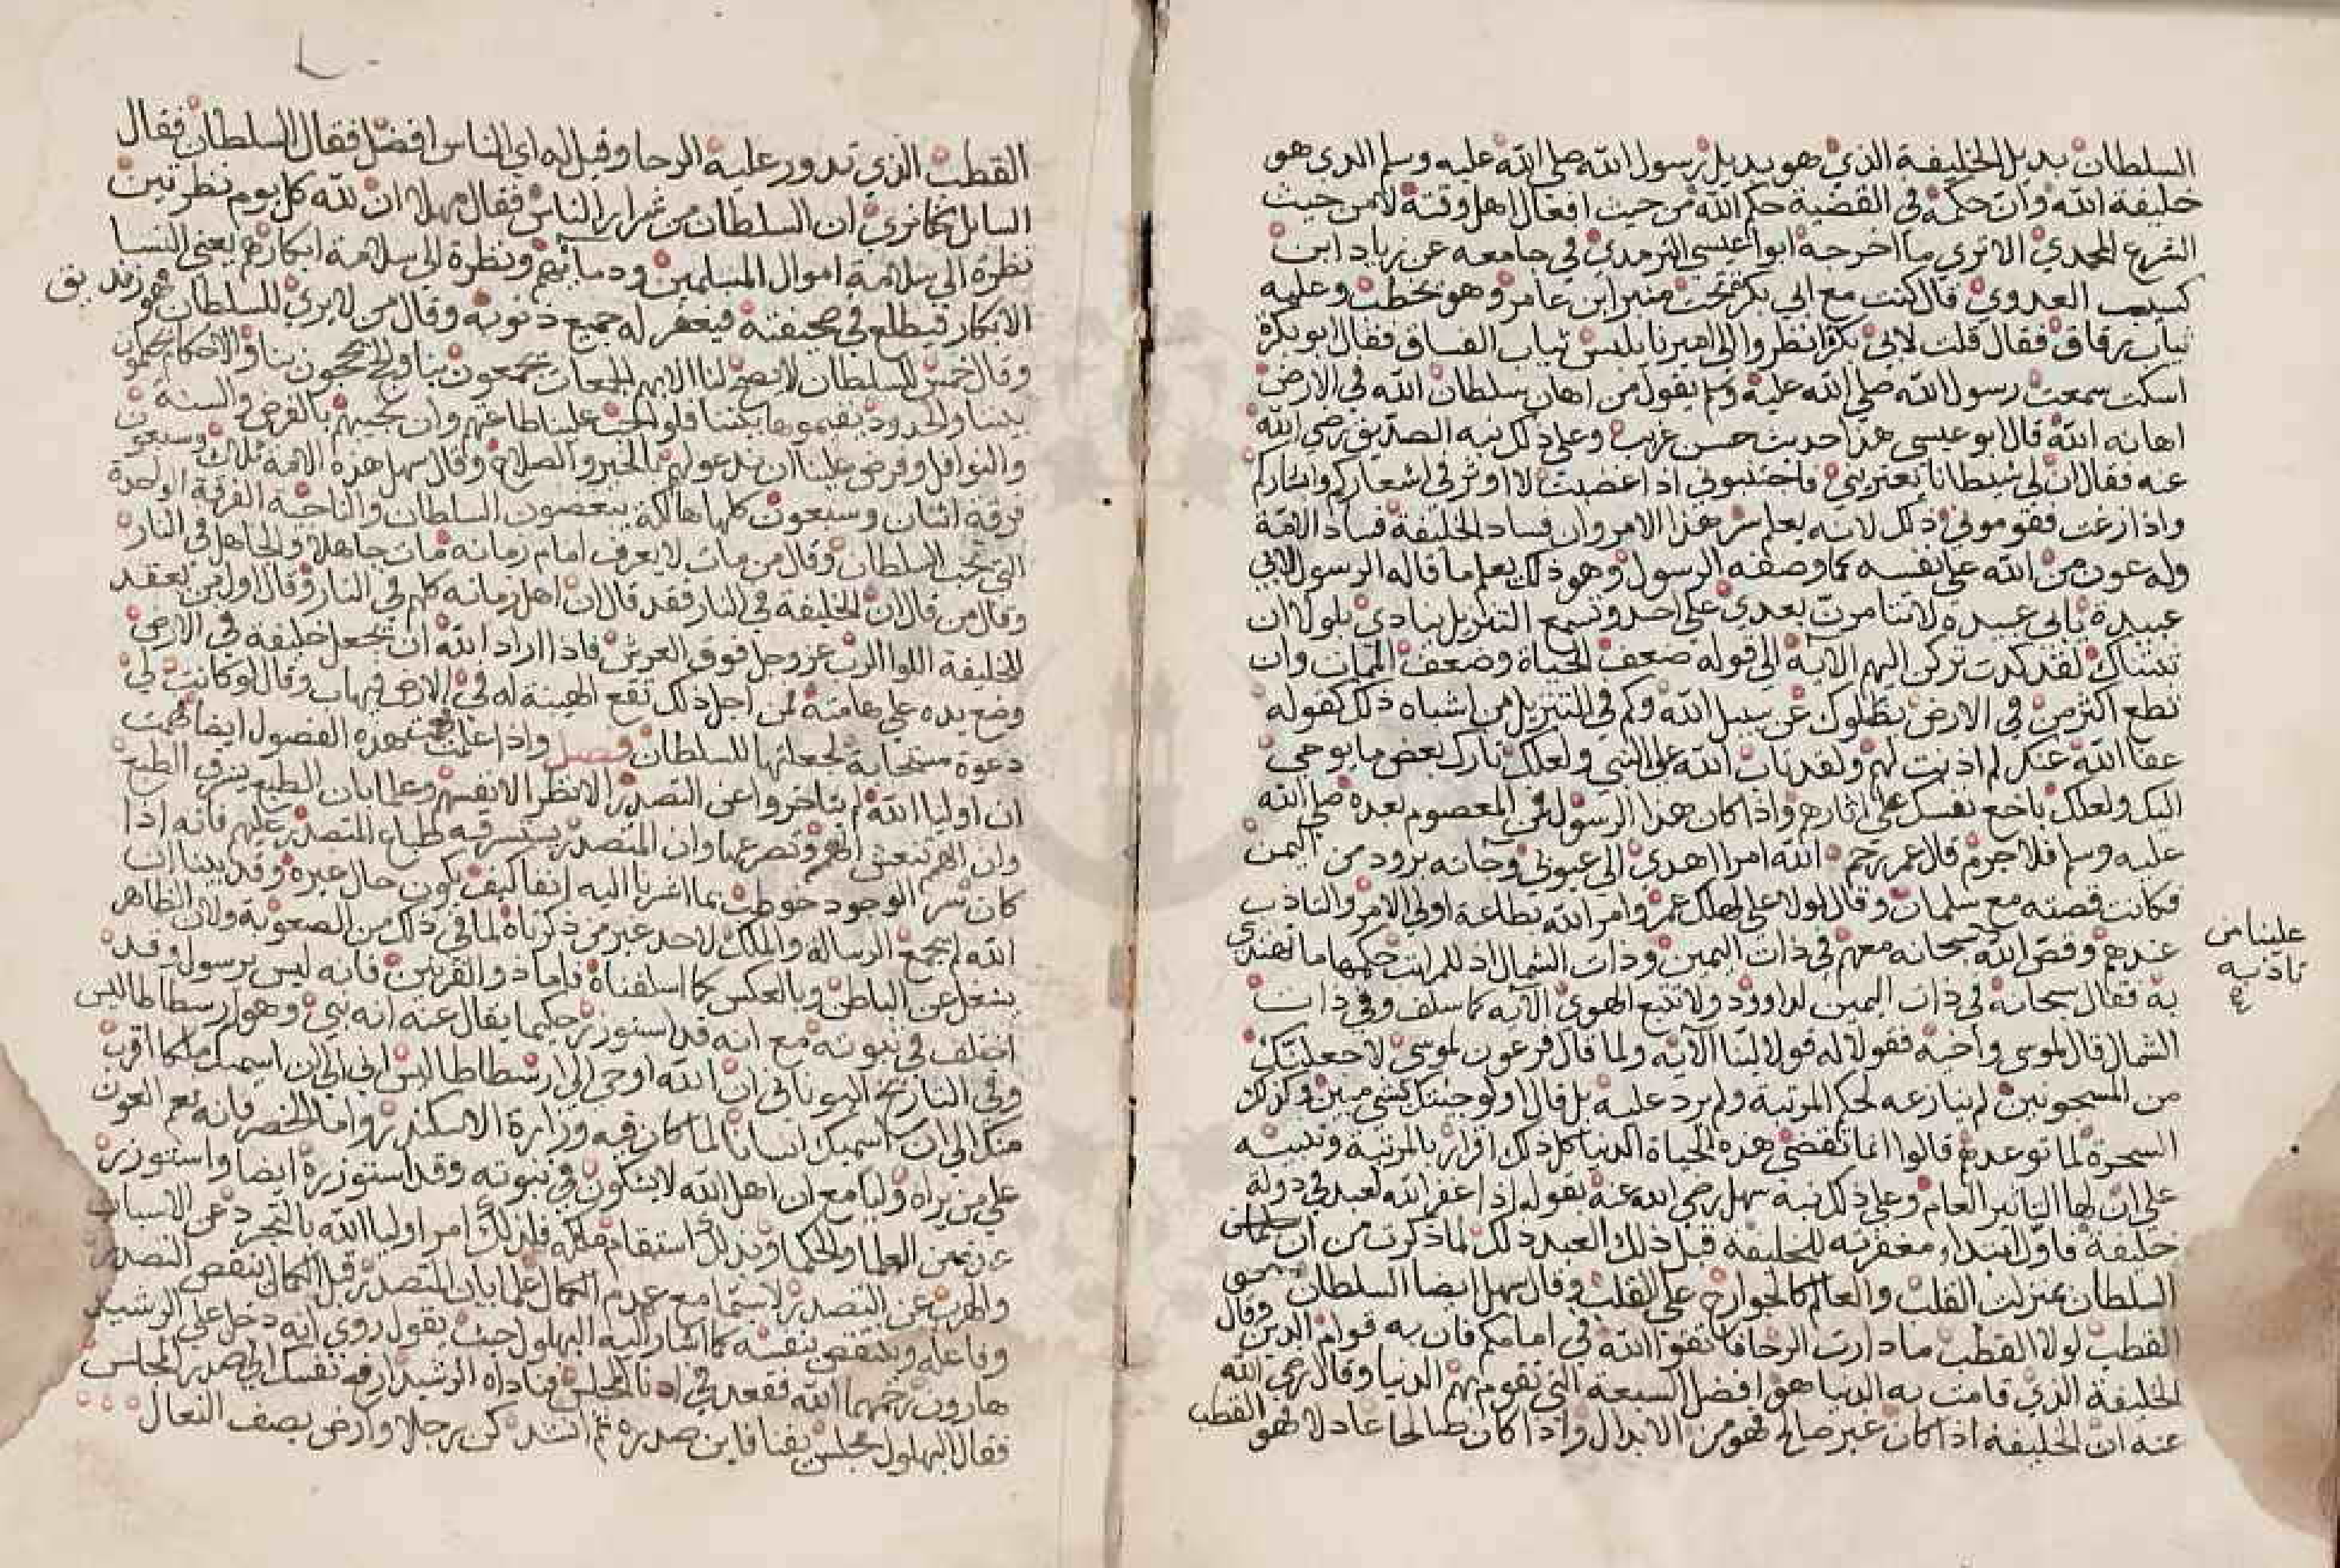 السلطان بديل الخليفة الذي هو بديل رسول الله صلى الله عليه وسلم الذي هو
خليفة الله وان حكمه في القضية حكم الله من حيث افعال اهل وقته لا من حيث
الشرع المحمدي الا تري ما اخرجه ابوا عيسى الترمدي في جامعه عن زياد ابن
كسيب العدوي قال كنت مع ابي بكرة تحت منبر ابن عامر وهو يخطب وعليه
ثياب رقاق فقال قلت لابي بكرة انظروا الى اميرنا يلبس ثياب الفساق فقال ابو بكرة
اسكت سمعت رسول الله صلى الله عليه وسلم يقول من اهان سلطان الله في الارض
اهانه الله قال ابو عيسى هذا حديث حسن غريب وعلى ذلك نبه الصديق رضي الله
عنه فقال ان لي شيطانا يعتريني فاجتنبوني اذا غضبت لا اوثر في اشعاركم وابشاركم
واذا زغت فقوموني وذلك لانه يعلم سر هذا الامر وان فساد الخليفة فساد الامة
وله عون من الله على نفسه كما وصفه الرسول وهو ذلك يعلم ما قاله الرسول لابي
عبيدة يابي عبيدة لا تتامرن بعدي على احد وتسمع التنزيل ينادي بلولا ان
ثبتناك لقد كدت تركن اليهم الاية الى قوله ضعف الحياة وضعف الممات وان
تطع اكثر من في الارض يضلوك عن سبيل الله وكم في التنزيل من اشباه ذلك كقوله
عفا الله عنك لم اذنت لهم ولقد تاب الله على النبي ولعلك تارك بعض ما يوحى
اليك ولعلك باخع نفسك على اثارهم واذا كان هذا الرسول فمن المعصوم بعده صلى الله
عليه وسلم فلا جرم قال عمر رحم الله امرا اهدى الى عيوبي وجانه برود من اليمن
فكانت قصته مع سلمان وقال لولا علي لهلك عمر وامر الله بطاعة اولي الامر والتاذب
علينا من
تاذبه
عندهم وقص الله سبحانه معهم في ذات اليمين وذات الشمال اذ للمراتب حكمها ما تهتدي
به فقال سبحانه في ذات اليمين لداوود ولا تتبع الهوى الاية كما سلف وفي ذات
الشمال قال لموسى واخيه فقولا له قولا لينا الاية ولما قال فرعون لموسى لاجعلنك
من المسجونين لم ينازعه لحكم المرتبة ولم يرد عليه بل قال اولو جيتك بشي مبين وكذلك
السحرة لما توعدهم قالوا انما تقضي هذه الحياة الدنيا كل ذلك اقرار بالمرتبة وتنبيه
على ان لها التاثير العام وعلى ذلك نبه سهل رضي الله عنه بقوله اذا غفر الله لعبد في دولة
خليفة فاول ابتداء مغفرته للخليفة قبل ذلك العبد ذلك لما ذكرت من ان
السلطان بمنزلت القلب والعالم كالجوارح على القلب وقال سهل ايضا السلطان
القطب لولا القطب ما دارت الرحا فاتقوا الله في امامكم فان به قوام الدين وقال
الخليفة الذي قامت به الدنيا هو افضل السبعة التي تقوم بهم الدنيا وقال رضي الله
عنه ان الخليفة اذا كان غير صالح فهو من الابدال واذا كان صالحا عادلا فهو القطب
القطب الذي تدور عليه الرحا وقيل له اي الناس افضل فقال السلطان فقال
السايل كنا نرى ان السلطان من شرار الناس فقال مهلا ان لله كل يوم نظرتين
نظرة الى سلامة اموال المسلمين ودمايهم ونظرة الى سلامة ابكارهم يعني النسا
الابكار فيطلع في صحيفته فيغفر له جميع ذنوبه وقال من لا يرى للسلطان فهو زنديق
وقال خمس للسلطان لا تصح لنا الا بهم الجمعات يجمعون بنا والحج يحجون بنا والاحكام يحكمون
بيننا والحدود يقيموها بيننا فلو الحت علينا طاعتهم وان نجيبهم بالفرض والسنة
والنوافل وفرض علينا ان ندعو لهم بالخير والصلاح وقال سهل هذه الامة ثلاث وسبعون
فرقة اثنان وسبعون كلها هالكة يبغضون السلطان والناجية الفرقة الواحدة
التي تحب السلطان وقال من مات لا يعرف امام زمانه مات جاهلا والجاهل في النار
وقال من قال ان الخليفة في النار فقد قال ان اهل زمانه كلهم في النار وقال اول من يعقد
للخليفة اللوا الرب عز وجل فوق العرش فاذا اراد الله ان يجعل خليفة في الارض
وضع يده على هامته فمن اجل ذلك تقع الهيبة له في الارض فيهاب وقال لو كانت لي
دعوة مستجابة لجعلتها للسلطان فصل واذا علمت هذه الفصول ايضا فهمت
ان اوليا الله لم يتاخروا عن التصدر الا نظرا لانفسهم وعلما بان الطبع يسرق الطبع
وان الهمم تنعش الهمم وتصرعها وان المتصدر يسترقه طباع المتصدر عليهم فانه اذا
كان شر الوجود خوطب بما اشرنا اليه انفا كيف يكون حال غيره وقد بينا ان
الله لم يجمع الرسالة والملك لاحد غير من ذكرناه لما في ذلك من الصعوبة ولان الظاهر
يشغل عن الباطن وبالعكس كما اسلفناه فاما ذو القرنين فانه ليس برسول وقد
اختلف في نبوته مع انه قد استوزر حكيما يقال عنه انه نبي وهو ارسطاطاليس
وفي التاريخ اليوناني ان الله اوحى الى ارسطاطاليس اني الى ان اسميك ملكا اقرب
منك الى ان اسميك انسانا لما كان فيه وزارة الاسكندر واما الخضر فانه نعم العون
على من يراه وليا مع ان اهل الله لا يشكون في نبوته وقد استوزره ايضا واستوزر
عن تمن العلما والحكما وبذلك استقام ملكه فلذلك امر اوليا الله بالتجرد عن الاسباب
والهرب عن التصدر لا سيما مع عدم الكمال علما بان المتصدر قبل الكمال ينقص التصدر
وفاعله وينتقص بنفسه كما اشار اليه البهلول حيث يقول روي انه دخل على الرشيد
هارون رحمهما الله فقعد في ادنا المجلس فناداه الرشيد ارفع نفسك الى صدر المجلس
فقال البهلول مجلس يفنا فاين صدره ثم انشد كن رجلا وارض بصف النعال